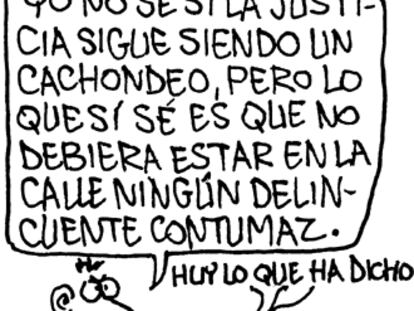 YO NO SÉ SI LA JUSTI-
CIA SIGUE SIENDO UN
CACHONDEO, PERO LO
QUE SÍ SÉ ES QUE NO
DEBIERA ESTAR EN LA
CALLE NINGÚN DELIN-
CUENTE CONTUMAZ.
HUY LO QUE HA DICHO